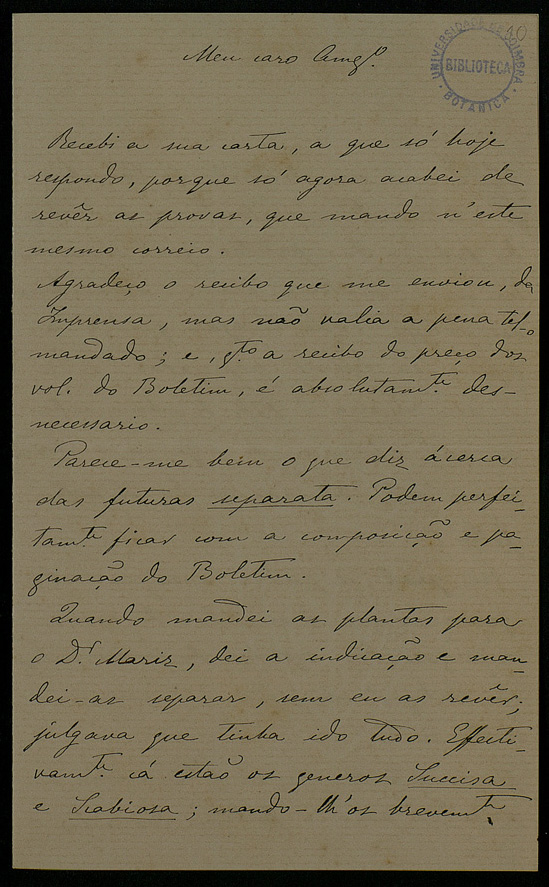 10
UNIVERSIDADE DE COIMBRA
BIBLIOTECA
BOTANICA
Meu caro Amgº.
Recebi a sua carta, a que só hoje
respondo, porque só agora acabei de
revêr as provas, que mando n'este
mesmo correio.
Agradeço o recibo que me enviou, da
Imprensa, mas não valia a pena tel-o
mandado; e, qtº a recibo do preço dos
vol. do Boletim, é absolutamte des-
necessario.
Parece-me bem o que diz ácerca
das futuras separata. Podem perfei-
tamte ficar com a composição e pa-
ginação do Boletim.
Quando mandei as plantas para
o Dr Mariz, dei a indicação e man-
dei-as separar, sem eu as revêr;
julgava que tinha ido tudo. Effecti-
vamte cá estão os generos Succisa
e Scabiosa; mando-lh'os brevemte